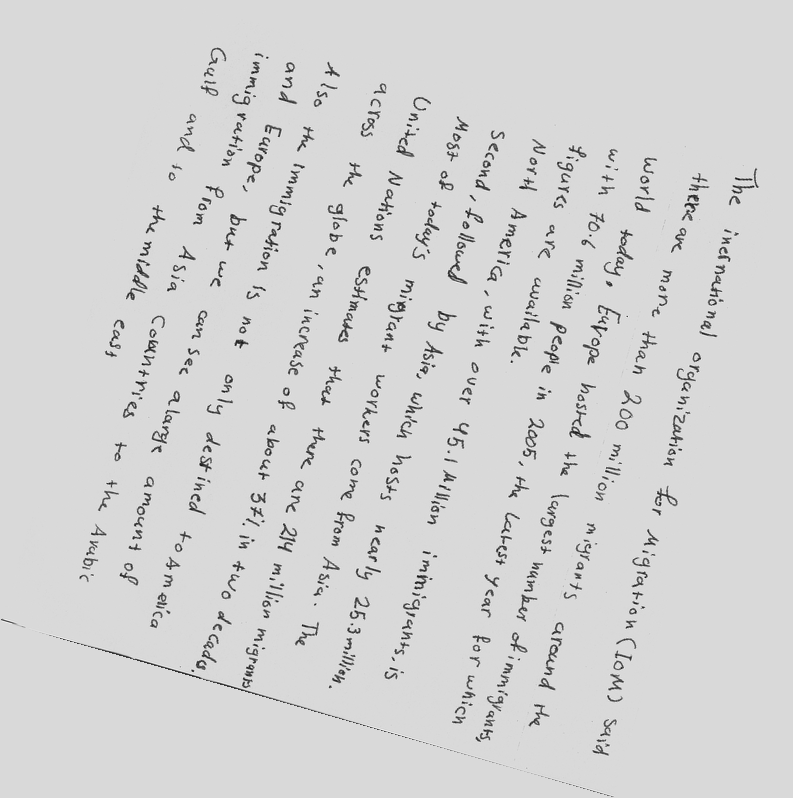 The inernational organization for Migration (IOM) said
there are more than 200 million migrants around the
world today. Europe hosted the largest number of immigrants,
with 70.6 million people in 2005, the latest year for which
figures are available.
North America, with over 45.1 Million immigrants, is
second, followed by Asia, which hosts nearly 25.3 million.
Most of today's migrant workers come from Asia. The
United Nations estimates that there are 214 million migrants
across the globe, an increase of about 37% in two decads.
Also the immigration is not only destined to America
and Europe, but we can see alarge amount of
immigration from Asia Countries to the Arabic
Gulf and to the middle east